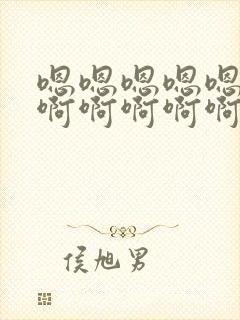 嗯嗯嗯嗯嗯
啊啊啊啊啊
侯旭男